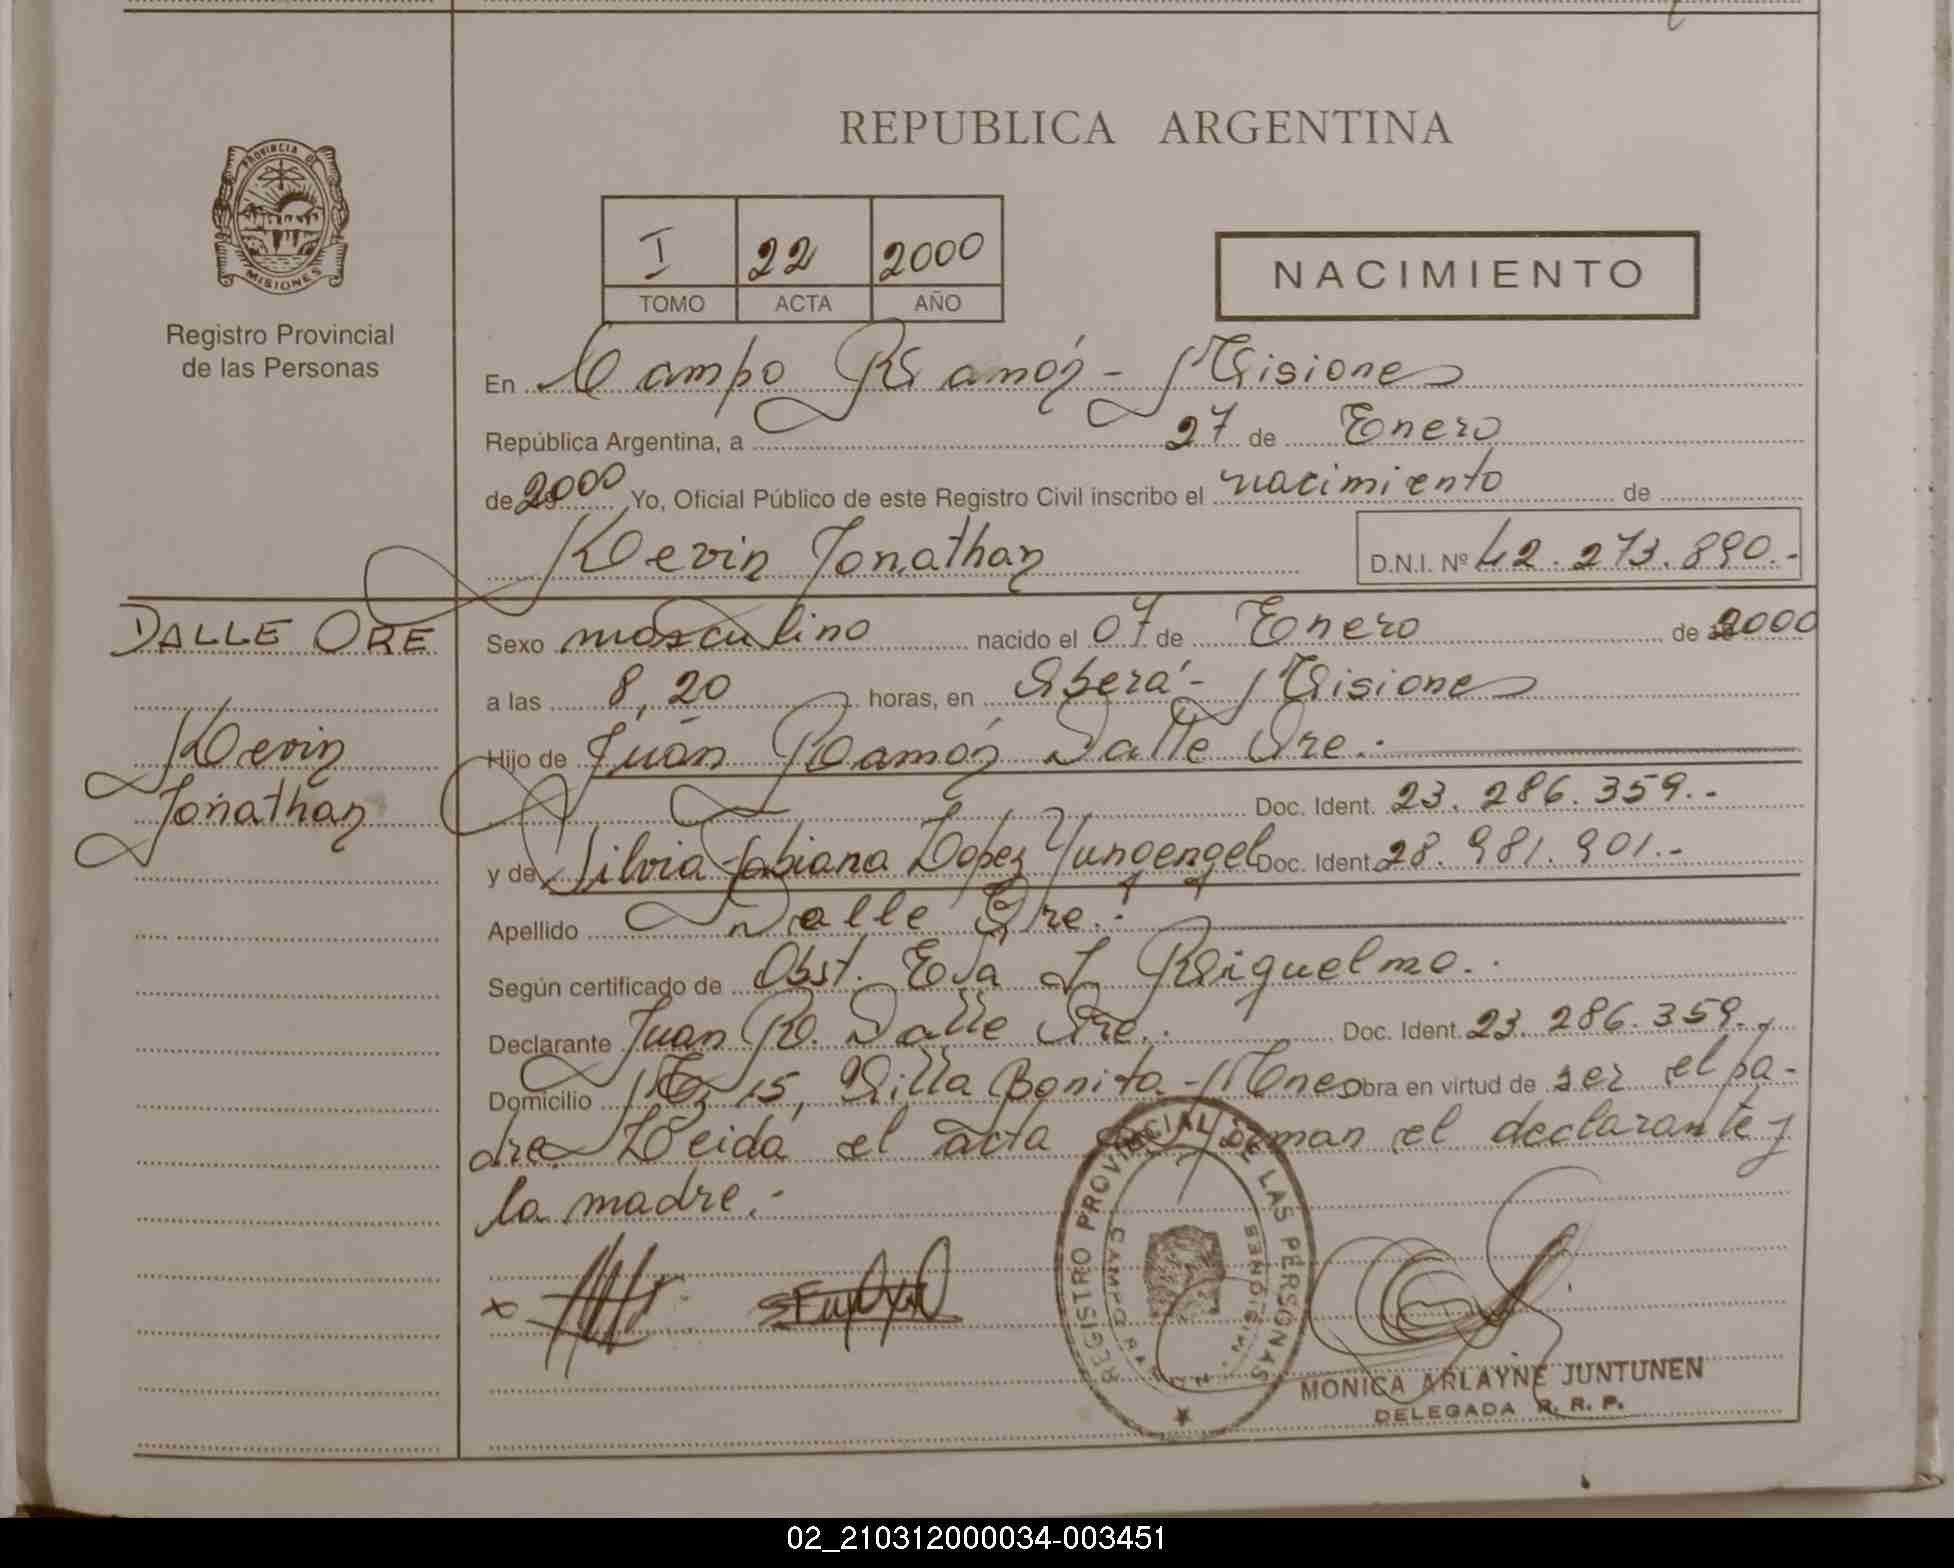 PROVINCIA DE
MISIONES
Registro Provincial
de las Personas
REPUBLICA ARGENTINA
I 22 2000
TOMO ACTA AÑO
NACIMIENTO
En Campo Ramón - Misiones
República Argentina, a 27 de Enero
de 2000 Yo, Oficial Público de este Registro Civil inscribo el nacimiento de
Kevin Jonathan D.N.I. Nº 42.273.890.-
DALLE ORE
Kevin
Jonathan
Sexo masculino nacido el 07 de Enero de 2000
a las 8,20 horas, en Oberá - Misiones
Hijo de Juan Ramón Dalle Ore.-
Doc. Ident. 23.286.359.-
y de Silvia Fabiana Lopez Yungengel Doc. Ident. 28.981.901.-
Apellido Dalle Ore.-
Según certificado de Obst. Eva L Riquelme.-
Declarante Juan R. Dalle Ore.- Doc. Ident. 23.286.359.-
Domicilio 15, Villa Bonita - Mnes obra en virtud de ser el pa-
dre. Leida el acta firman el declarante y
la madre.-
REGISTRO PROVINCIAL DE LAS PERSONAS
CAMPO RAMON - MISIONES
MONICA ARLAYNE JUNTUNEN
DELEGADA R. R. P.
02_210312000034-003451